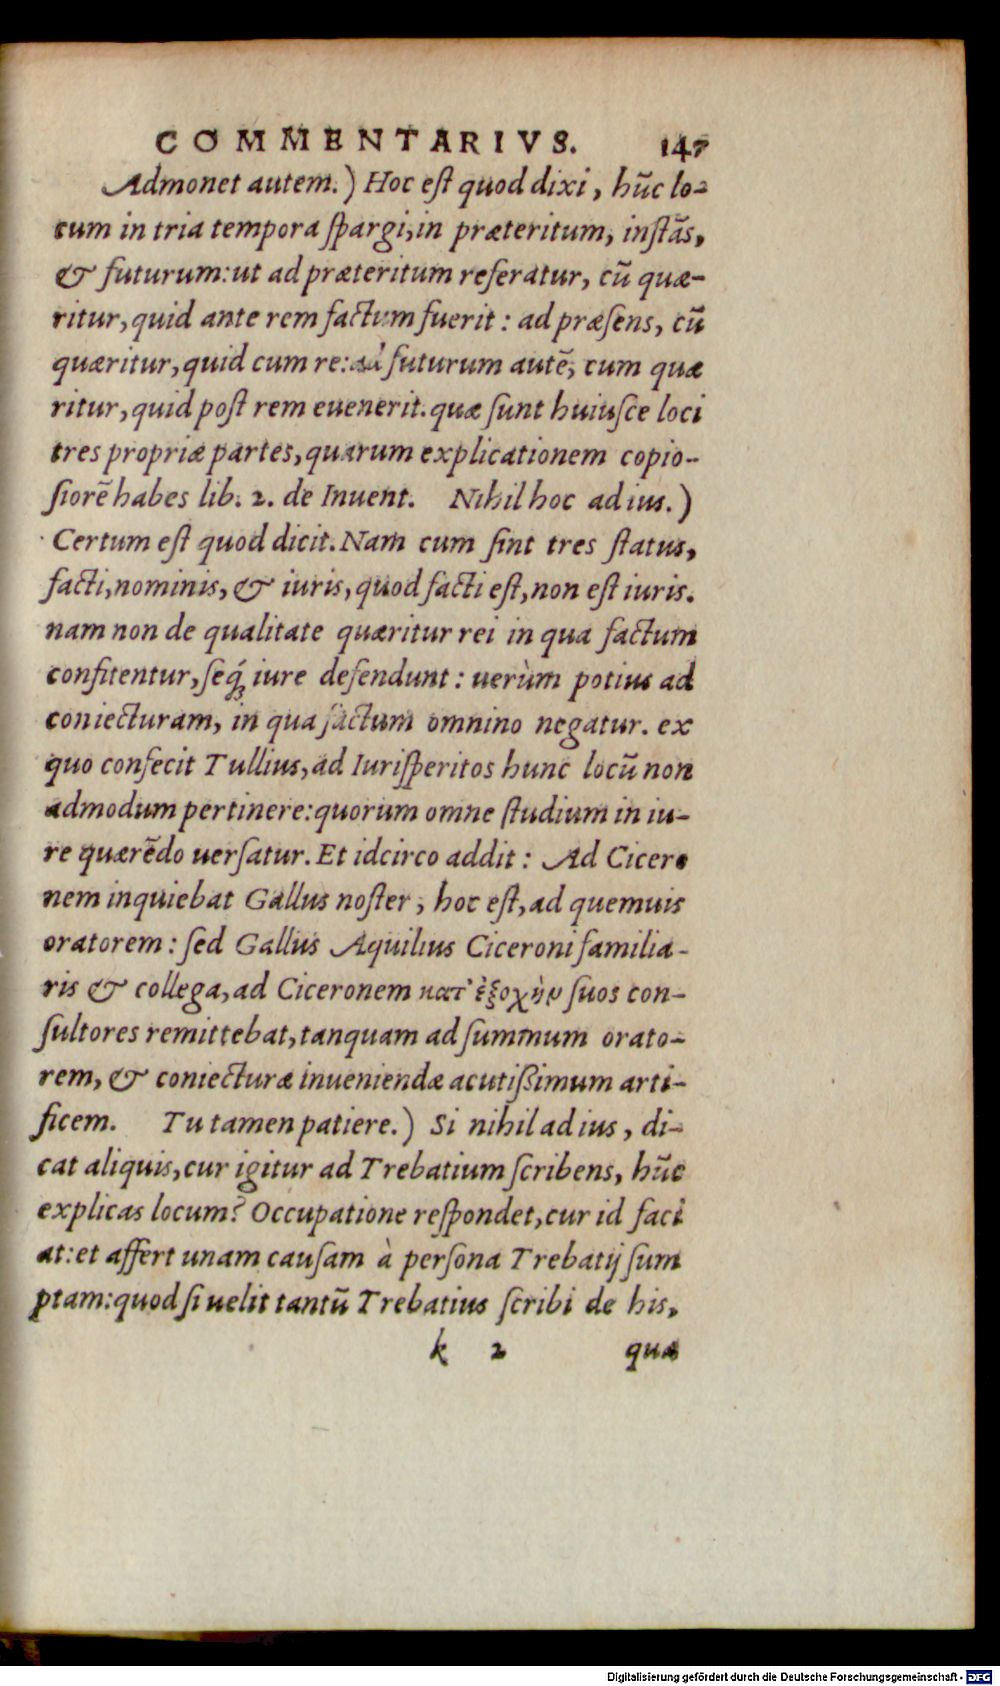 COMMENTARIVS. 147
Admonet autem.) Hoc eſt quod dixi, hũc lo-
cum in tria tempora ſpargi, in præteritum, inſtãs,
& futurum: ut ad præteritum referatur, cũ quæ-
ritur, quid ante rem factum fuerit: ad præſens, cũ
quæritur, quid cum re: ad futurum autẽ, cum quæ
ritur, quid poſt rem euenerit. quæ ſunt huiuſce loci
tres propriæ partes, quarum explicationem copio-
ſiorẽ habes lib. 2. de Inuent. Nihil hoc ad ius.)
Certum eſt quod dicit. Nam cum ſint tres ſtatus,
facti, nominis, & iuris, quod facti eſt, non eſt iuris.
nam non de qualitate quæritur rei in qua factum
confitentur, ſeq́ꝫ iure defendunt: uerùm potius ad
coniecturam, in qua factum omnino negatur. ex
quo confecit Tullius, ad Iuriſperitos hunc locũ non
admodum pertinere: quorum omne ſtudium in iu-
re quærẽdo uerſatur. Et idcirco addit: Ad Cicero
nem inquiebat Gallus noſter, hoc eſt, ad quemuis
oratorem: ſed Gallus Aquilius Ciceroni familia-
ris & collega, ad Ciceronem κατ' ἐξοχὴν ſuos con-
ſultores remittebat, tanquam ad ſummum orato-
rem, & coniecturæ inueniendæ acutißimum arti-
ficem. Tu tamen patiere.) Si nihil ad ius, di-
cat aliquis, cur igitur ad Trebatium ſcribens, hũc
explicas locum? Occupatione reſpondet, cur id faci
at: et affert unam cauſam à perſona Trebatij ſum
ptam: quod ſi uelit tantũ Trebatius ſcribi de his,
k 2 quæ
Digitalisierung gefördert durch die Deutsche Forschungsgemeinschaft - DFG